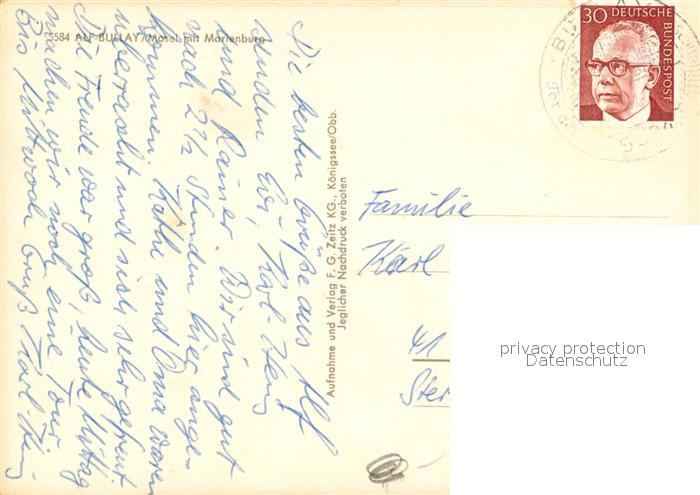 5584 ALF-BULLAY/Mosel mit Marienburg
Die besten Grüße aus Alf
senden Euch, Karl-Heinz
und Rainer. Wir sind gut
nach 2½ Stunden hier ange-
kommen. Käthe und Oma waren
überrascht und sich sehr gefreut
Die Freude war groß, heute Mittag
machen wir noch eine Tour
Bis Mittwoch Gruß Karl Heinz
Aufnahme und Verlag F. G. Zeitz KG., Königssee/Obb.
Jeglicher Nachdruck verboten
30 DEUTSCHE
BUNDESPOST
Familie
Karl
41
Ster
privacy protection
Datenschutz